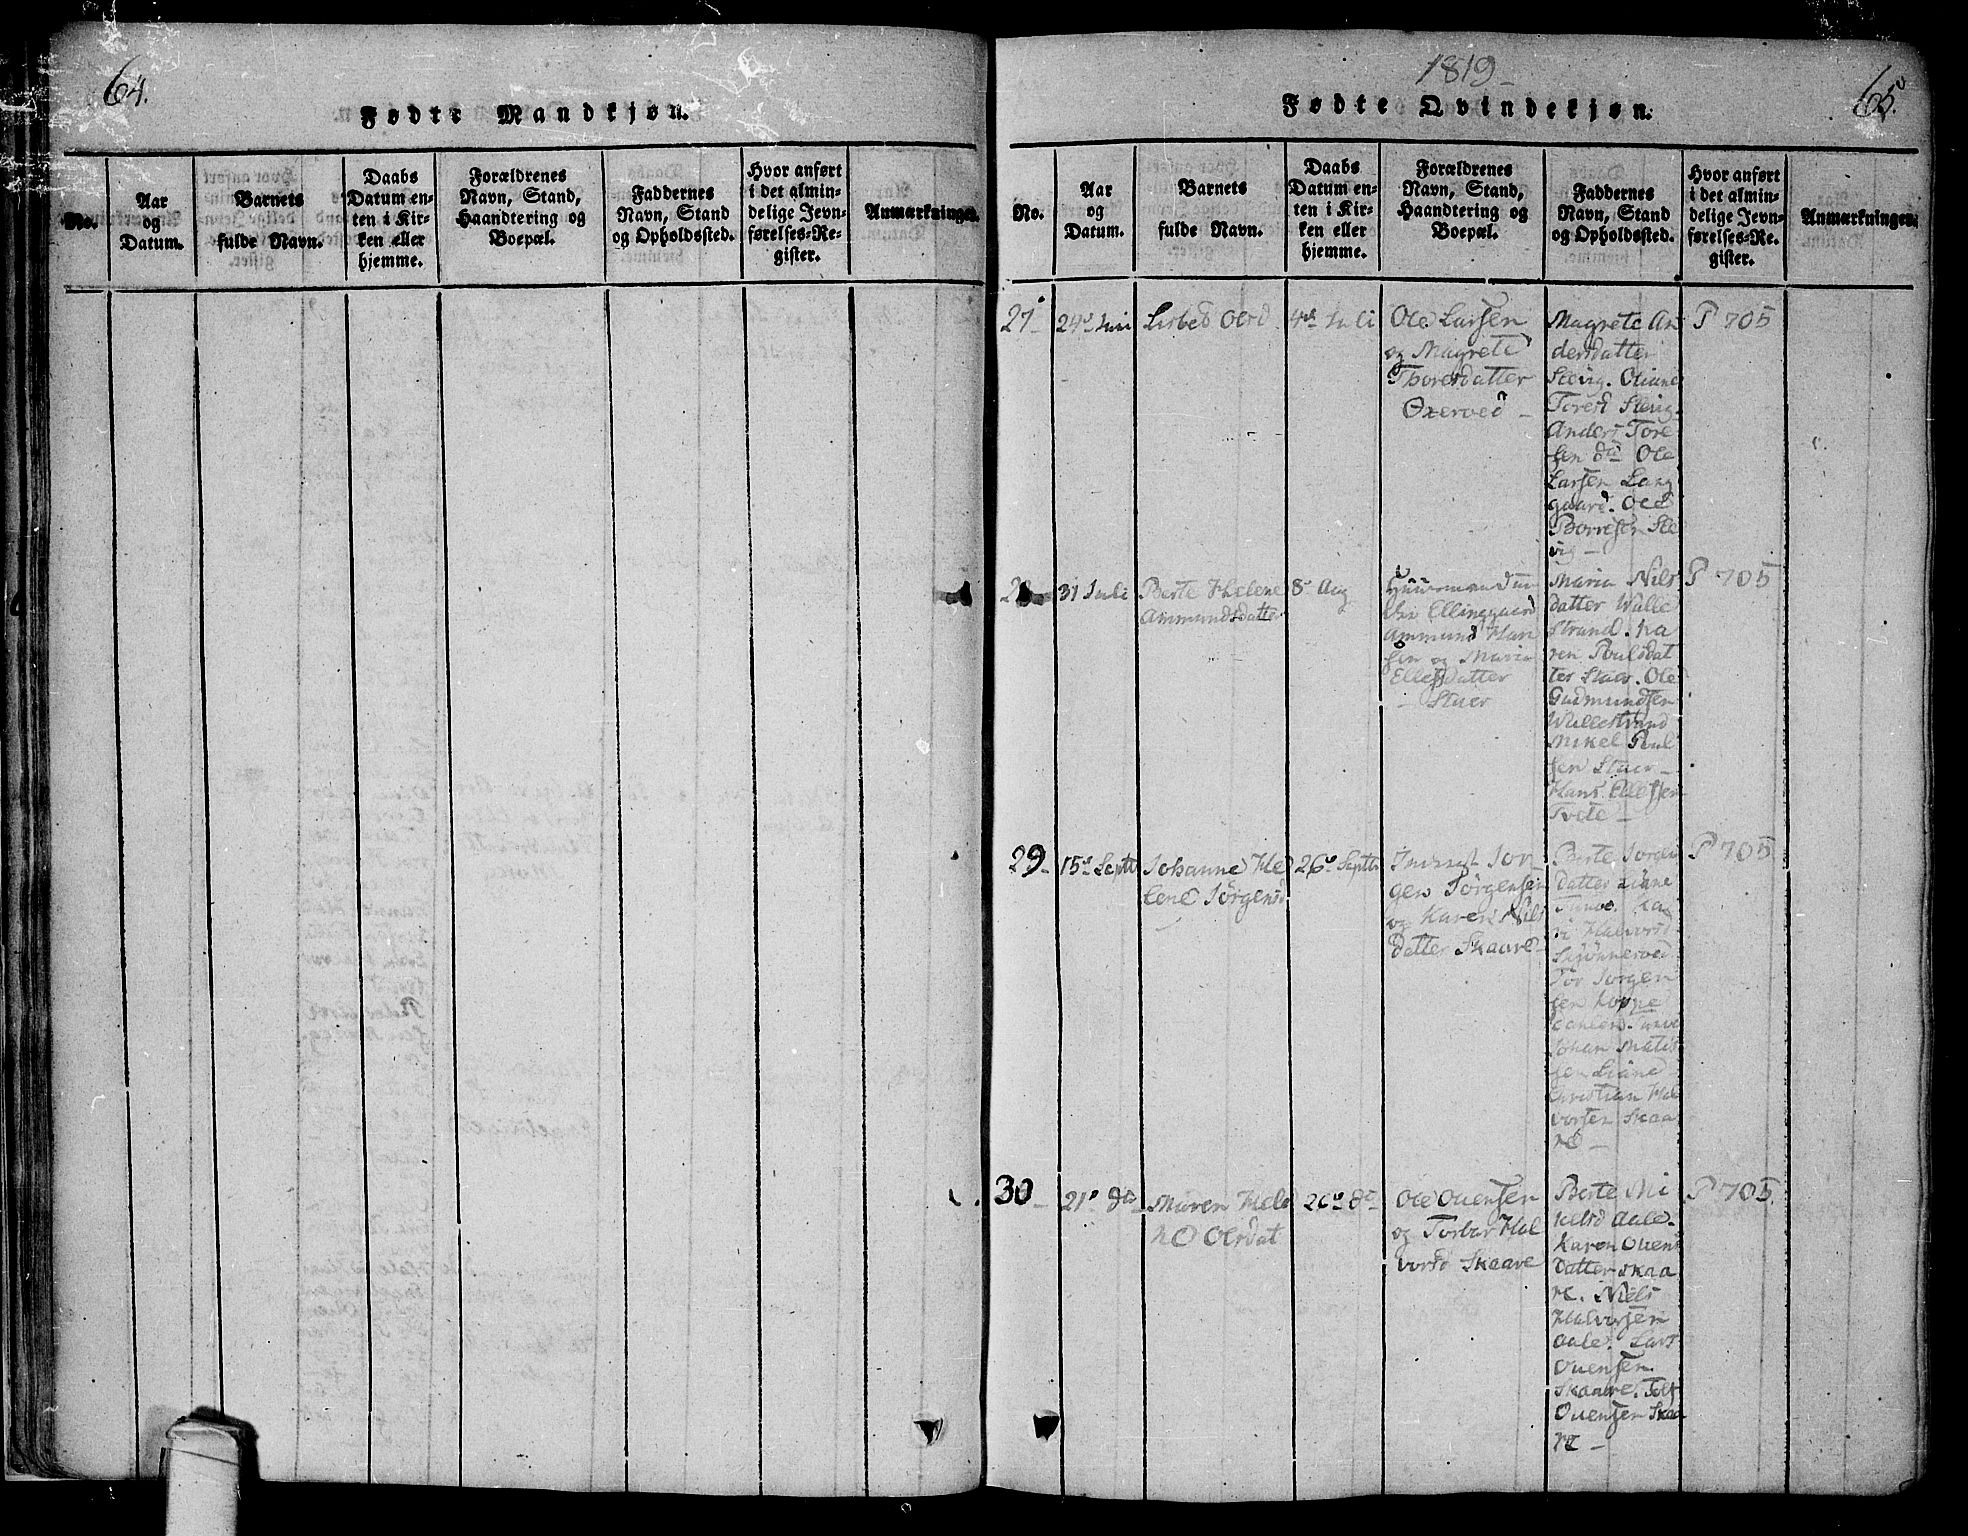 64.
Fødte Mandkjøn.
No.
Aar
og
Datum.
Barnets
fulde Navn.
Daabs
Datum en-
ten i Kir-
ken eller
hjemme.
Forældrenes
Navn, Stand,
Haandtering og
Boepæl.
Faddernes
Navn, Stand
og Opholdssted.
Hvor anført
i det almin-
delige Jevn-
førelses-Re-
gister.
Anmærkninger.
1819
65.
Fødte Qvindekjøn.
No.
Aar
og
Datum.
Barnets
fulde Navn.
Daabs
Datum en-
ten i Kir-
ken eller
hjemme.
Forældrenes
Navn, Stand,
Haandtering og
Boepæl.
Faddernes
Navn, Stand
og Opholdssted.
Hvor anført
i det almin-
delige Jevn-
førelses-Re-
gister.
Anmærkninger.
27
Lisbed Olsd.
4de Juli
Ole Larsen
og Magrete
Thoresdatter
Oxerved
Magrete An
dersdatter
Slevig. Oliane
Toresd Slevig.
Anders Tore
sen do Ole
Larsen Lang
gaard. Ole
Borresen Sle
vig
P 705
28
31 Juli
Berte Helene
Ammundsdatter
8de Aug
Huusmand un
der Ellinggaard
Ammund Han
sen og Maria
Ellefsdatter
Stuer
Maria Nils
datter Walle
strand. Ka
ren Poulsdat
ter Stuer. Ole
Gudmundsen
Wallestrand
Mikel Poul
sen Stuer
Hans Ellefsen
Tvete
P 705
29
15de Septb
Johanne He
lene Jörgensd
26de Septb
Inderst Jör
gen Jörgensen
og Karen Nils
datter Skaare
Berte Jörgens
datter
Tunве. Ka
ri Halvorsd
Skjönnerød
Tor Jörgen
sen

Johan Matis
sen Liane
Christian Hal
vorsen Skaa
re
P 705
30
21de do
Maren Hele
ne Olsdat
26de do
Ole Ouensen
og Torbor Hal
vorsd Skaare
Berte Mi
kelsd Aale.
Karen Ouens
datter Skaa
re. Niels
Halvorsen
Aale. Lars
Ouensen
Skaare.
Ouensen Skaa
re
P 705